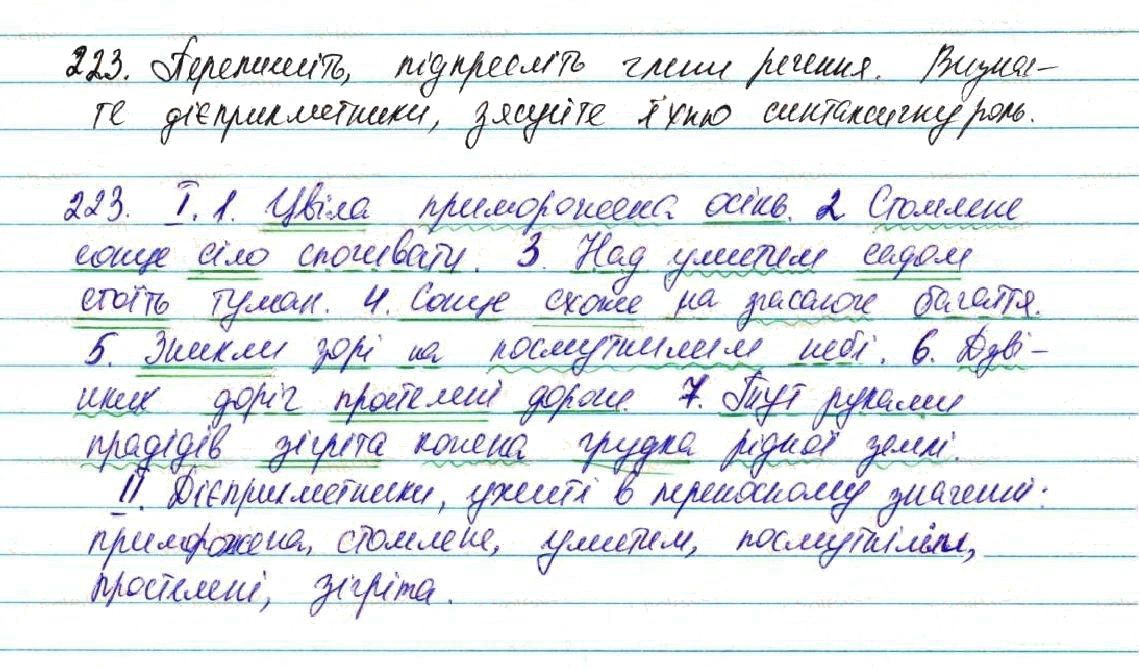 223. Перепишіть, підкресліть члени речення. Визнач-
те дієприкметники, зясуйте їхню синтаксичну роль.
223. І. 1. Цвіла приморожена осінь. 2 Стомлене
сонце сіло спочивати. 3. Над умитим садом
стоїть туман. 4. Сонце схоже на згасаюче багаття.
5. Зникли зорі на посмутнілим небі. 6. Дзві-
нких доріг простелені дороги. 7. Тут руками
прадідів зігріта кожена грудка рідної землі.
ІІ. Дієприкметники, ужиті в переносному значенні:
приморожена, стомлене, умитим, посмутнілім,
простелені, зігріта.